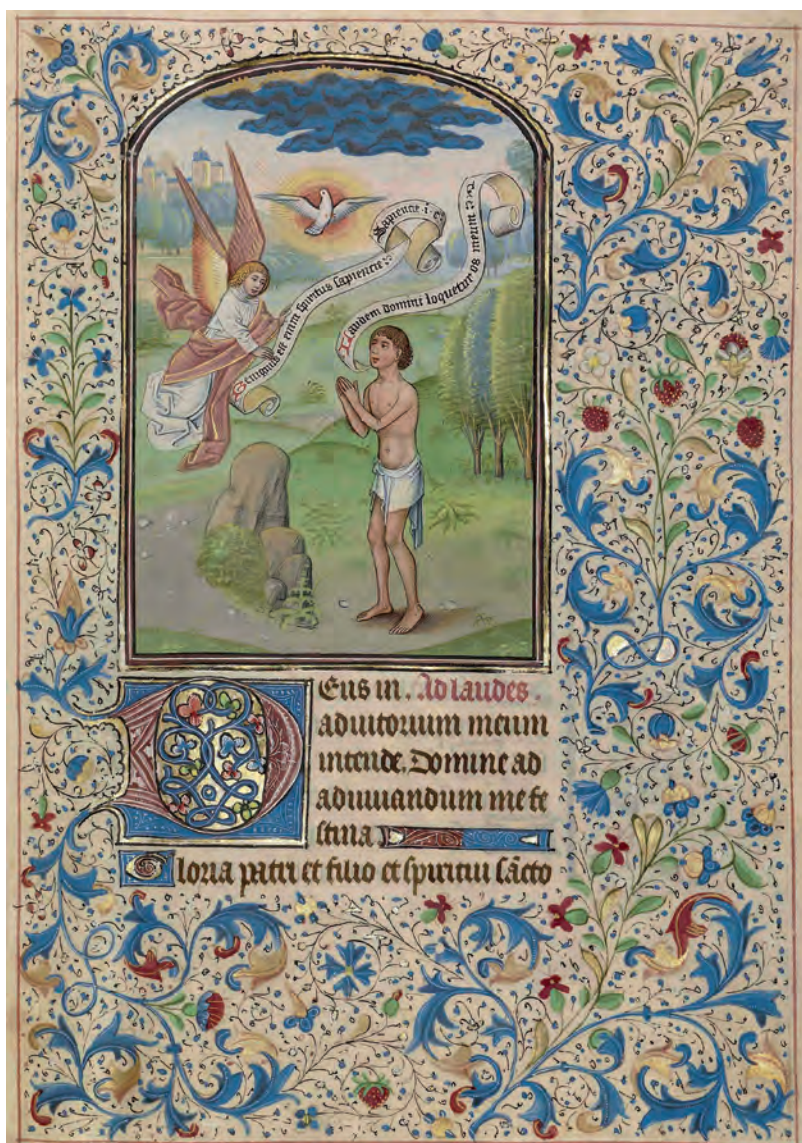 Benignus est enim spiritus sapiencie
Sapiencie. i. c
Laudem domini loquetur os meum
Deus in. Ad laudes.
adiutorium meum
intende. Domine ad
adiuuandum me fe
stina
Gloria patri et filio et spiritui sācto